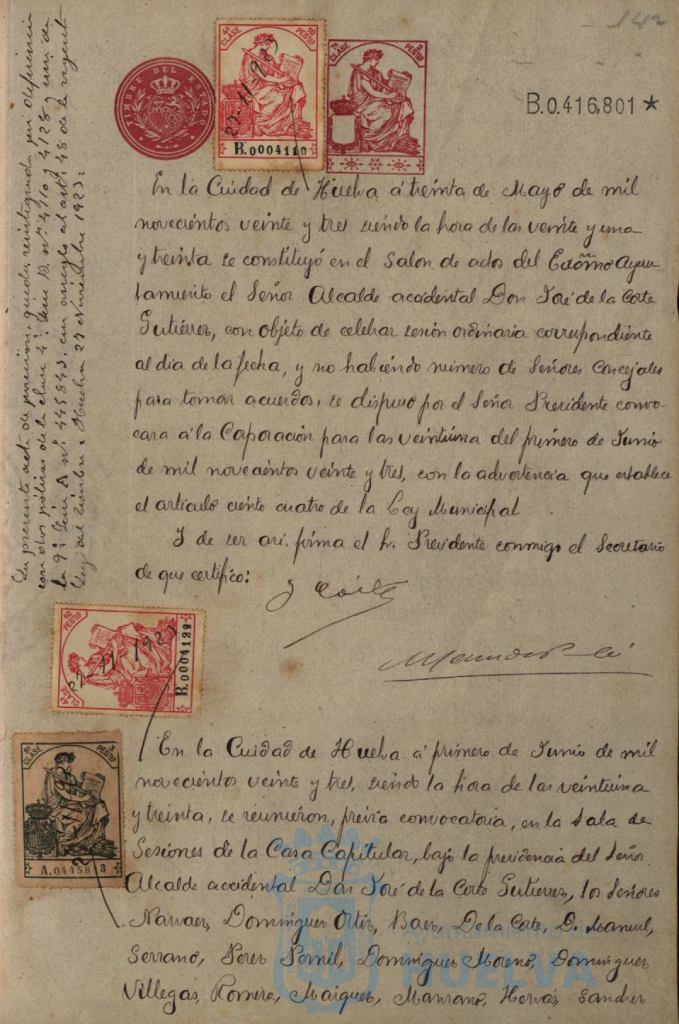 142
TIMBRE DEL ESTADO
4ª CLASE 10 PESTAS
22-11-1923
B.0004110
7ª CLASE 2 PESTAS
B.0.416,801 *
La presente acta de
con dos pólizas de la clase 4ª Serie B. nº 4110 y 4128 y una de
la 9ª Serie A nº 445843, con arreglo al artº 48 de la vigente
Ley del timbre = Huelva 27 Noviembre 1923:
En la Cuidad de Huelva á treinta de Mayo de mil
novecientos veinte y tres siendo la hora de las veinte y una
y treinta se constituyó en el Salon de actos del Excmo Ayun
tamiento el Señor Alcalde accidental Don José de la Corte
Gutiérrez, con objeto de celebrar sesión ordinaria correspondiente
al dia de la fecha, y no habiendo numero de Señores Concejales
para tomar acuerdos, se dispuso por el Señor Presidente convo-
cara á la Coporación para las veintiuna del primero de Junio
de mil novecientos veinte y tres, con la advertencia que establece
el articulo ciento cuatro de la Ley Municipal.
Y de ser asi firma el Sr. Presidente conmigo el Secretario
de que certifico:
J Corte
4ª CLASE 10 PESTAS
22-11-1923
CLASE PESTAS
A.0445843
En la Cuidad de Huelva á primero de Junio de mil
novecientos veinte y tres, siendo la hora de las veintiuna
y treinta, se reunieron, previa convocatoria, en la Sala de
Sesiones de la Casa Capitular, bajo la presidencia del Señor
Alcalde accidental Don José de la Corte Gutierrez, los Señores
Narvaez, Dominguez Ortiz, Baez, De la Corte, D. Manuel,
Serrano, Perez Pernil, Dominguez Moreno, Dominguez
Villegas, Romero, Maiquez, Manzano, Hervás Sanchez
HUELVA